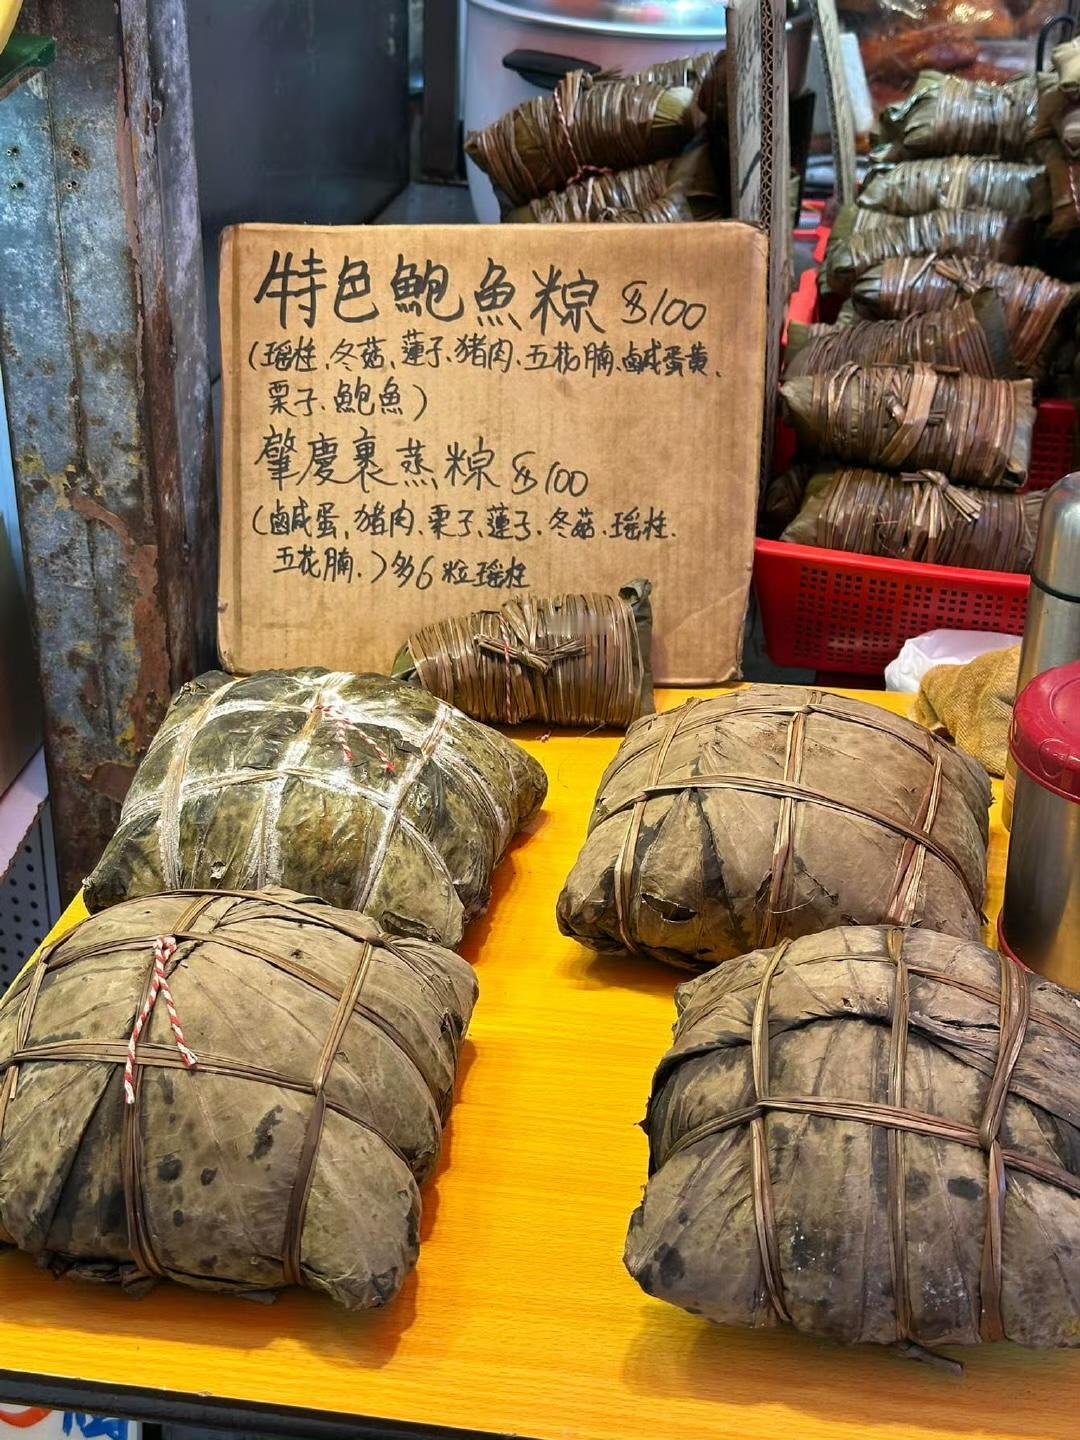 特色鮑魚粽 $100
(瑶柱、冬菇、蓮子、猪肉、五花腩、鹹蛋黄、
栗子、鮑魚)
肇慶裹蒸粽 $100
(鹹蛋、猪肉、栗子、蓮子、冬菇、瑶柱、
五花腩、)多6粒瑶柱